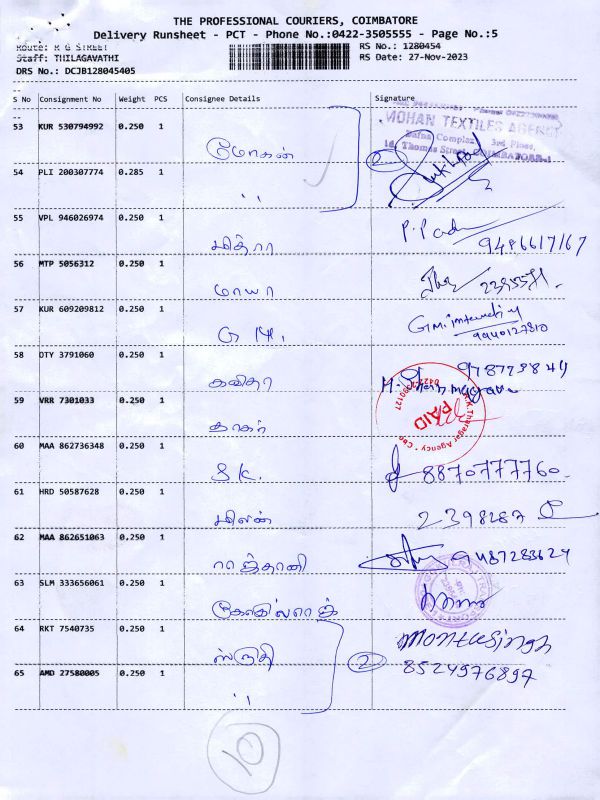 THE PROFESSIONAL COURIERS, COIMBATORE
Delivery Runsheet - PCT - Phone No.:0422-3505555 - Page No.:5
Route: R G STREET
RS No.: 1280454
Staff: THILAGAVATHI
RS Date: 27-Nov-2023
DRS No.: DCJB128045405
S No Consignment No Weight PCS Consignee Details Signature
53 KUR 530794992 0.250 1
மோகன்
MOHAN TEXTILES AGENCY
Complex, 3rd Floor,
Thomas Street, COIMBATORE-1
2
54 PLI 200307774 0.285 1
"
55 VPL 946026974 0.250 1
மித்ரா
9486617167
56 MTP 5056312 0.250 1
மாயா
57 KUR 609209812 0.250 1
G M.
G.M. international
9940127810
58 DTY 3791060 0.250 1
கவிதா
59 VRR 7301033 0.250 1
தாகூர்
PAID
60 MAA 862736348 0.250 1
S K.
8870777760
61 HRD 50587628 0.250 1
மிலன்
2398287
62 MAA 862651063 0.250 1
ராஜ்தானி
9487283624
63 SLM 333656061 0.250 1
கோகில்ராஜ்
64 RKT 7540735 0.250 1
ஸ்ருதி
Mohansingh
2
8524976897
65 AMD 27580005 0.250 1
"
10